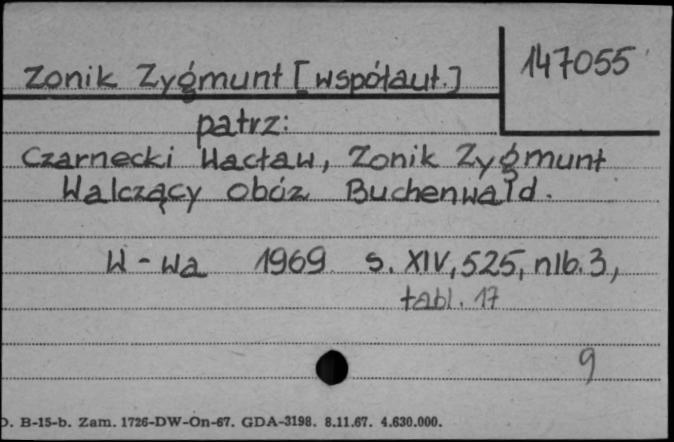 Zonik Zygmunt [współaut.]
147055
patrz:
Czarnecki Wacław, Zonik Zygmunt
Walczący obóz Buchenwald.
W-wa 1969 s. XIV, 525, nlb. 3,
tabl. 17
9
D. B-15-b. Zam. 1726-DW-On-67. GDA-3198. 8.11.67. 4.630.000.